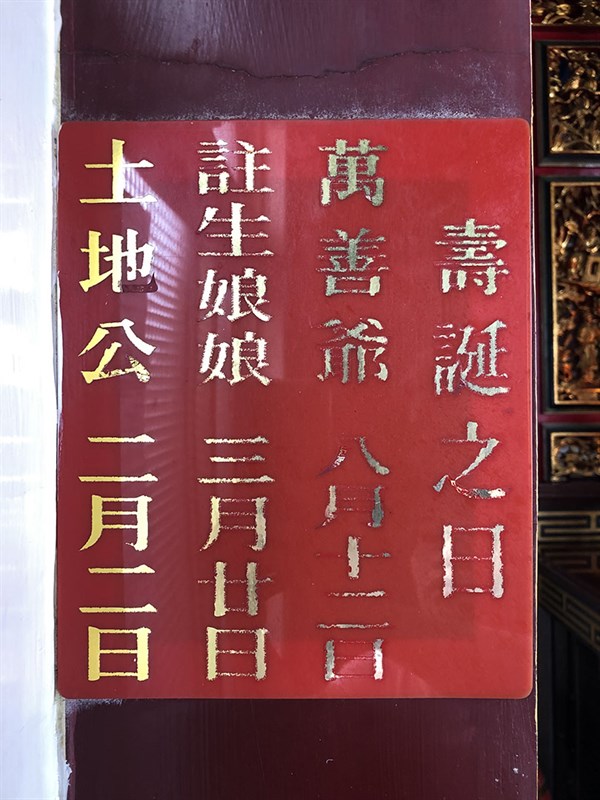 壽誕之日
萬善爺 八月十二日
註生娘娘 三月廿日
土地公 二月二日